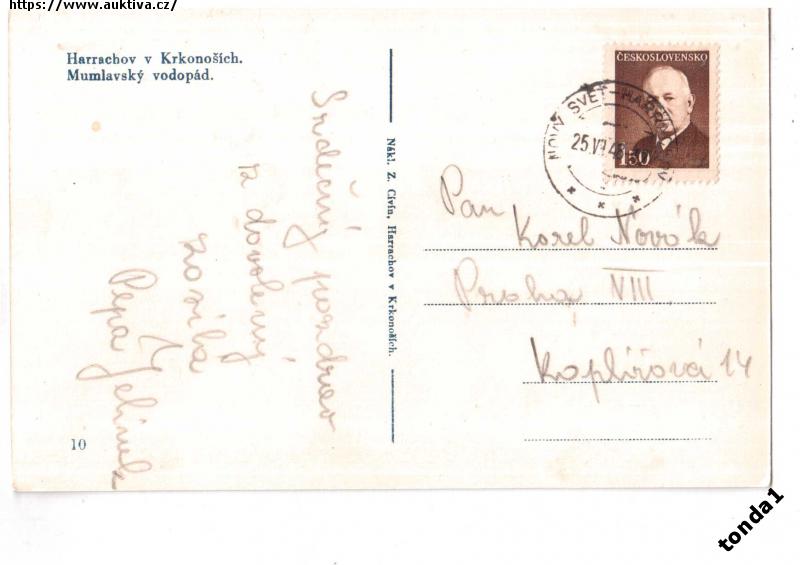 https://www.auktiva.cz/
Harrachov v Krkonoších.
Mumlavský vodopád.
Srdečný pozdrav
z dovolený
zasílá
Pepa Jelínek
10
Nákl. Z. Civín, Harrachov v Krkonoších.
ČESKOSLOVENSKO
1·50
NOVÝ SVĚT-HARRACHOV
25.VI.48
Pan
Karel Novák
Praha VIII
Koplířová 14
tonda1